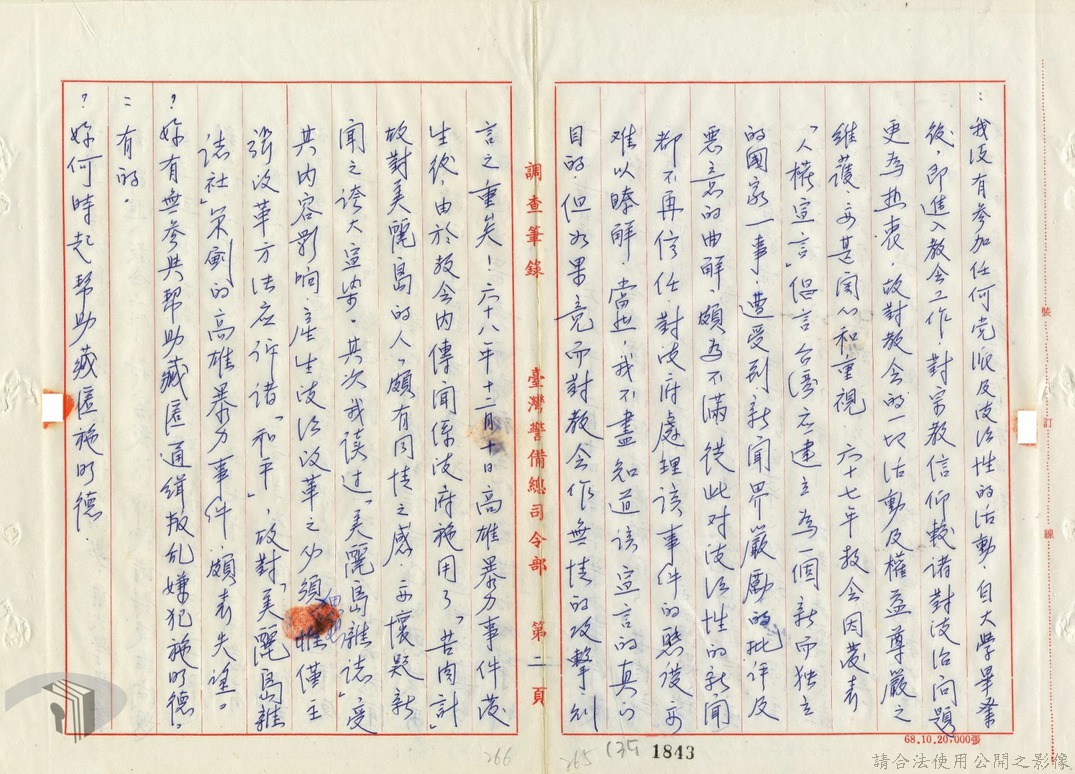 ：我沒有參加任何党派及政治性的活動，自大學畢業
後，即進入教会工作，對宗教信仰較諸對政治問題
更為热衷，故對教会的一切活動及權益尊嚴之
維護，亦甚関心和重視。六十七年教会因發表
「人權宣言」倡言台湾應建立為一個新而独立
的國家一事，遭受到新聞界嚴厲的批评及
惡意的曲解，頗為不滿，從此对政治性的新聞
都不再信任，對政府處理該事件的態度亦
难以瞭解，當然，我不盡知道該宣言的真正
目的，但如果竟而對教会作無情的攻擊則
調查筆錄
臺灣警備總司令部
第二頁
言之重矣！六十八年十二月十日高雄暴力事件發
生後，由於教会内傳聞係政府施用了「苦肉計」
故對美麗島的人，頗有同情之感，亦懷疑新
聞之誇大宣染。其次我讀过「美麗島雜誌」受
其内容影响，產生政治改革之必須，惟僅主
張改革方法应诉诸「和平」，故對「美麗島雜
誌社」策劃的高雄暴力事件，頗表失望。
？妳有無參與帮助藏匿通緝叛乱嫌犯施明德。
：有的。
？妳何時起帮助藏匿施明德。
裝
訂
線
68.10.20,000張
1843
265
266
請合法使用公開之影像